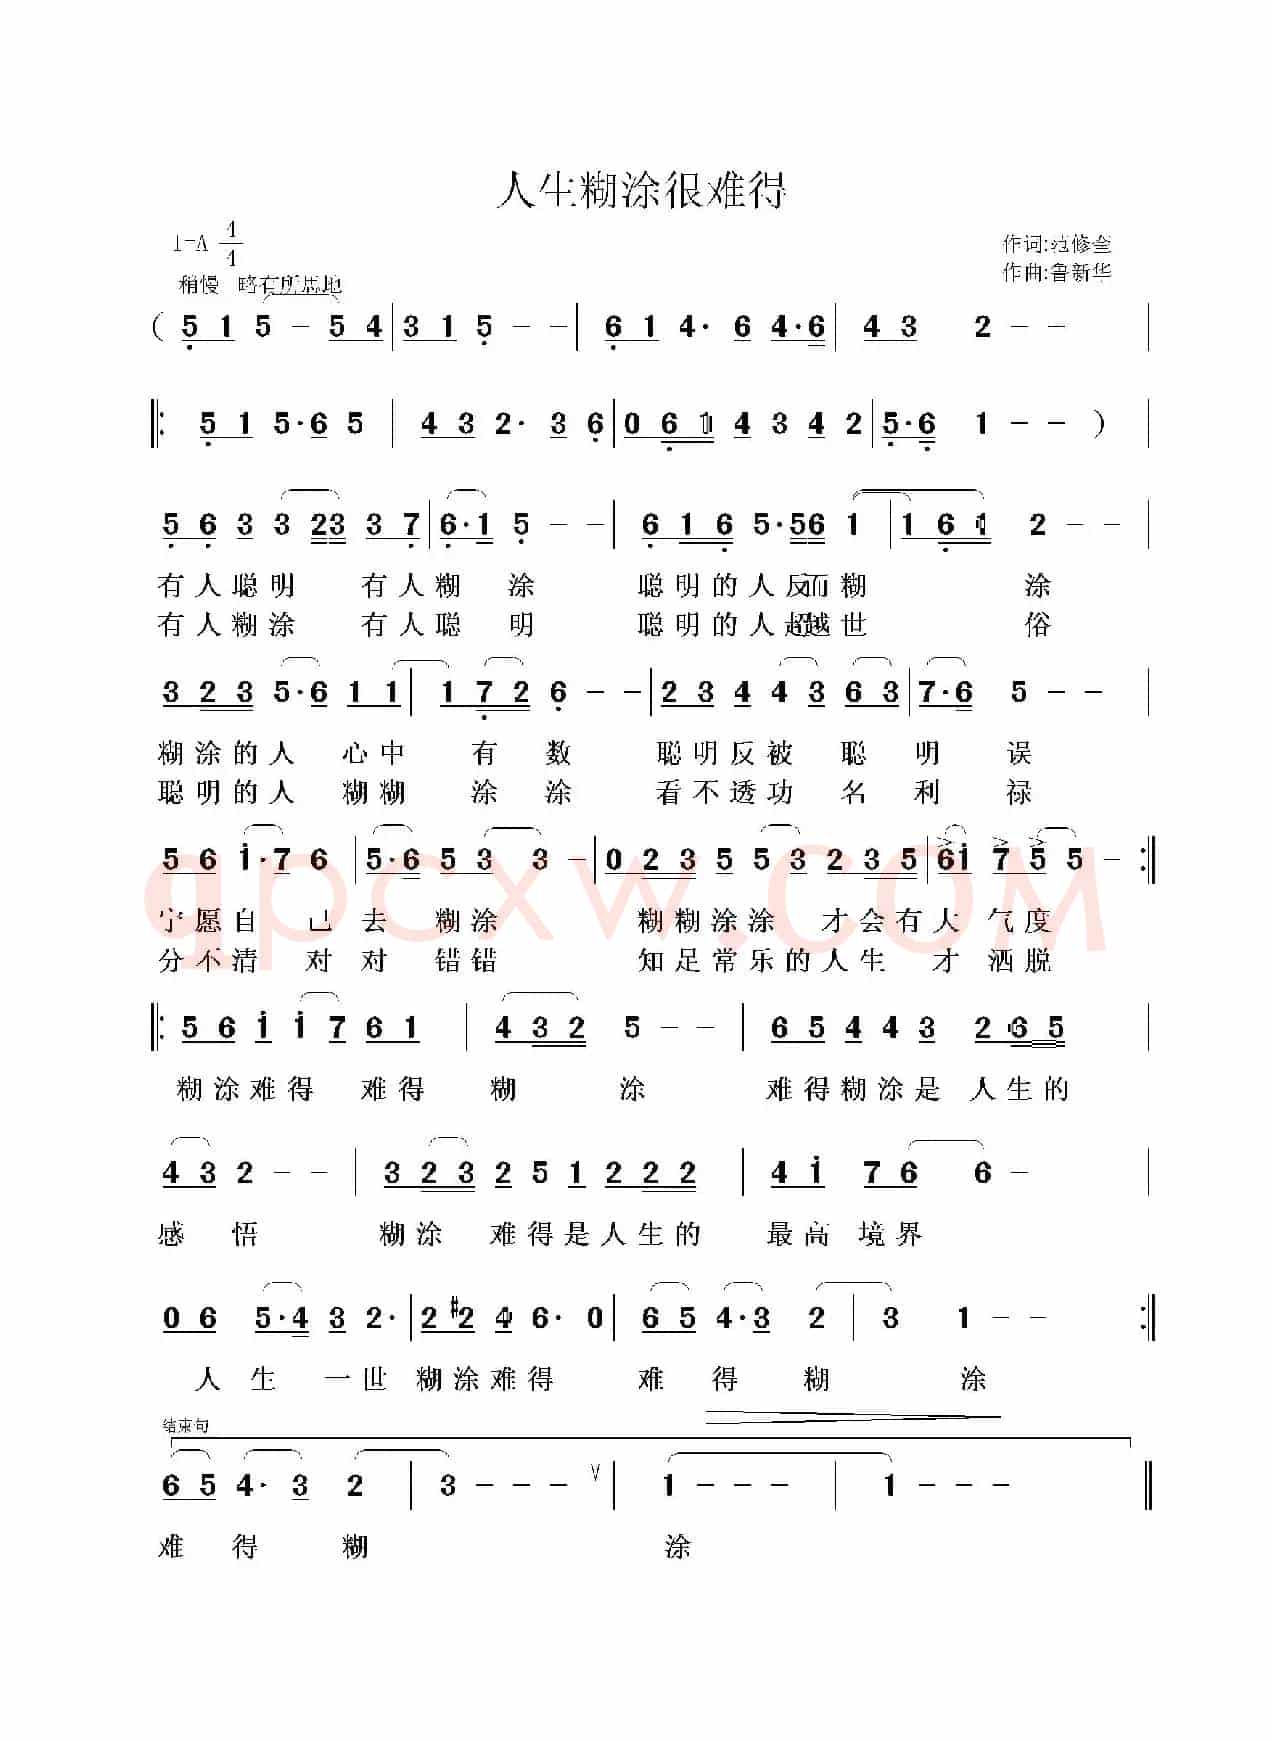 人生糊涂很难得
1=A 4/4
作词:范修奎
作曲:鲁新华
稍慢 略有所思地
( 5 1 5 - 5 4 | 3 1 5 - - | 6 1 4· 6 4·6 | 4 3 2 - - |
|: 5 1 5·6 5 | 4 3 2· 3 6 | 0 6 1 4 3 4 2 | 5·6 1 - - ) |
5 6 3 3 23 3 7 | 6·1 5 - - | 6 1 6 5·56 1 | 1 6 1 2 - - |
有人聪明 有人糊涂 聪明的人反而糊涂
有人糊涂 有人聪明 聪明的人超越世俗
3 2 3 5·6 1 1 | 1 7 2 6 - - | 2 3 4 4 3 6 3 | 7·6 5 - - |
糊涂的人 心中有数 聪明反被聪明误
聪明的人 糊糊涂涂 看不透功名利禄
5 6 i·7 6 | 5·6 5 3 3 - | 0 2 3 5 5 3 2 3 5 | 6i 7 5 5 - :|
宁愿自己去糊涂 糊糊涂涂 才会有大气度
分不清对对错错 知足常乐的人生才洒脱
|: 5 6 i i 7 6 1 | 4 3 2 5 - - | 6 5 4 4 3 2 6 5 |
糊涂难得 难得糊涂 难得糊涂是 人生的
4 3 2 - - | 3 2 3 2 5 1 2 2 2 | 4 i 7 6 6 - |
感悟 糊涂 难得是人生的 最高境界
0 6 5·4 3 2· | 2 #2 4 6· 0 | 6 5 4·3 2 | 3 1 - - :|
人生一世糊涂难得 难得糊涂
结束句
6 5 4· 3 2 | 3 - - - ∨ | 1 - - - | 1 - - - ‖
难得糊涂
gpcxw.COM